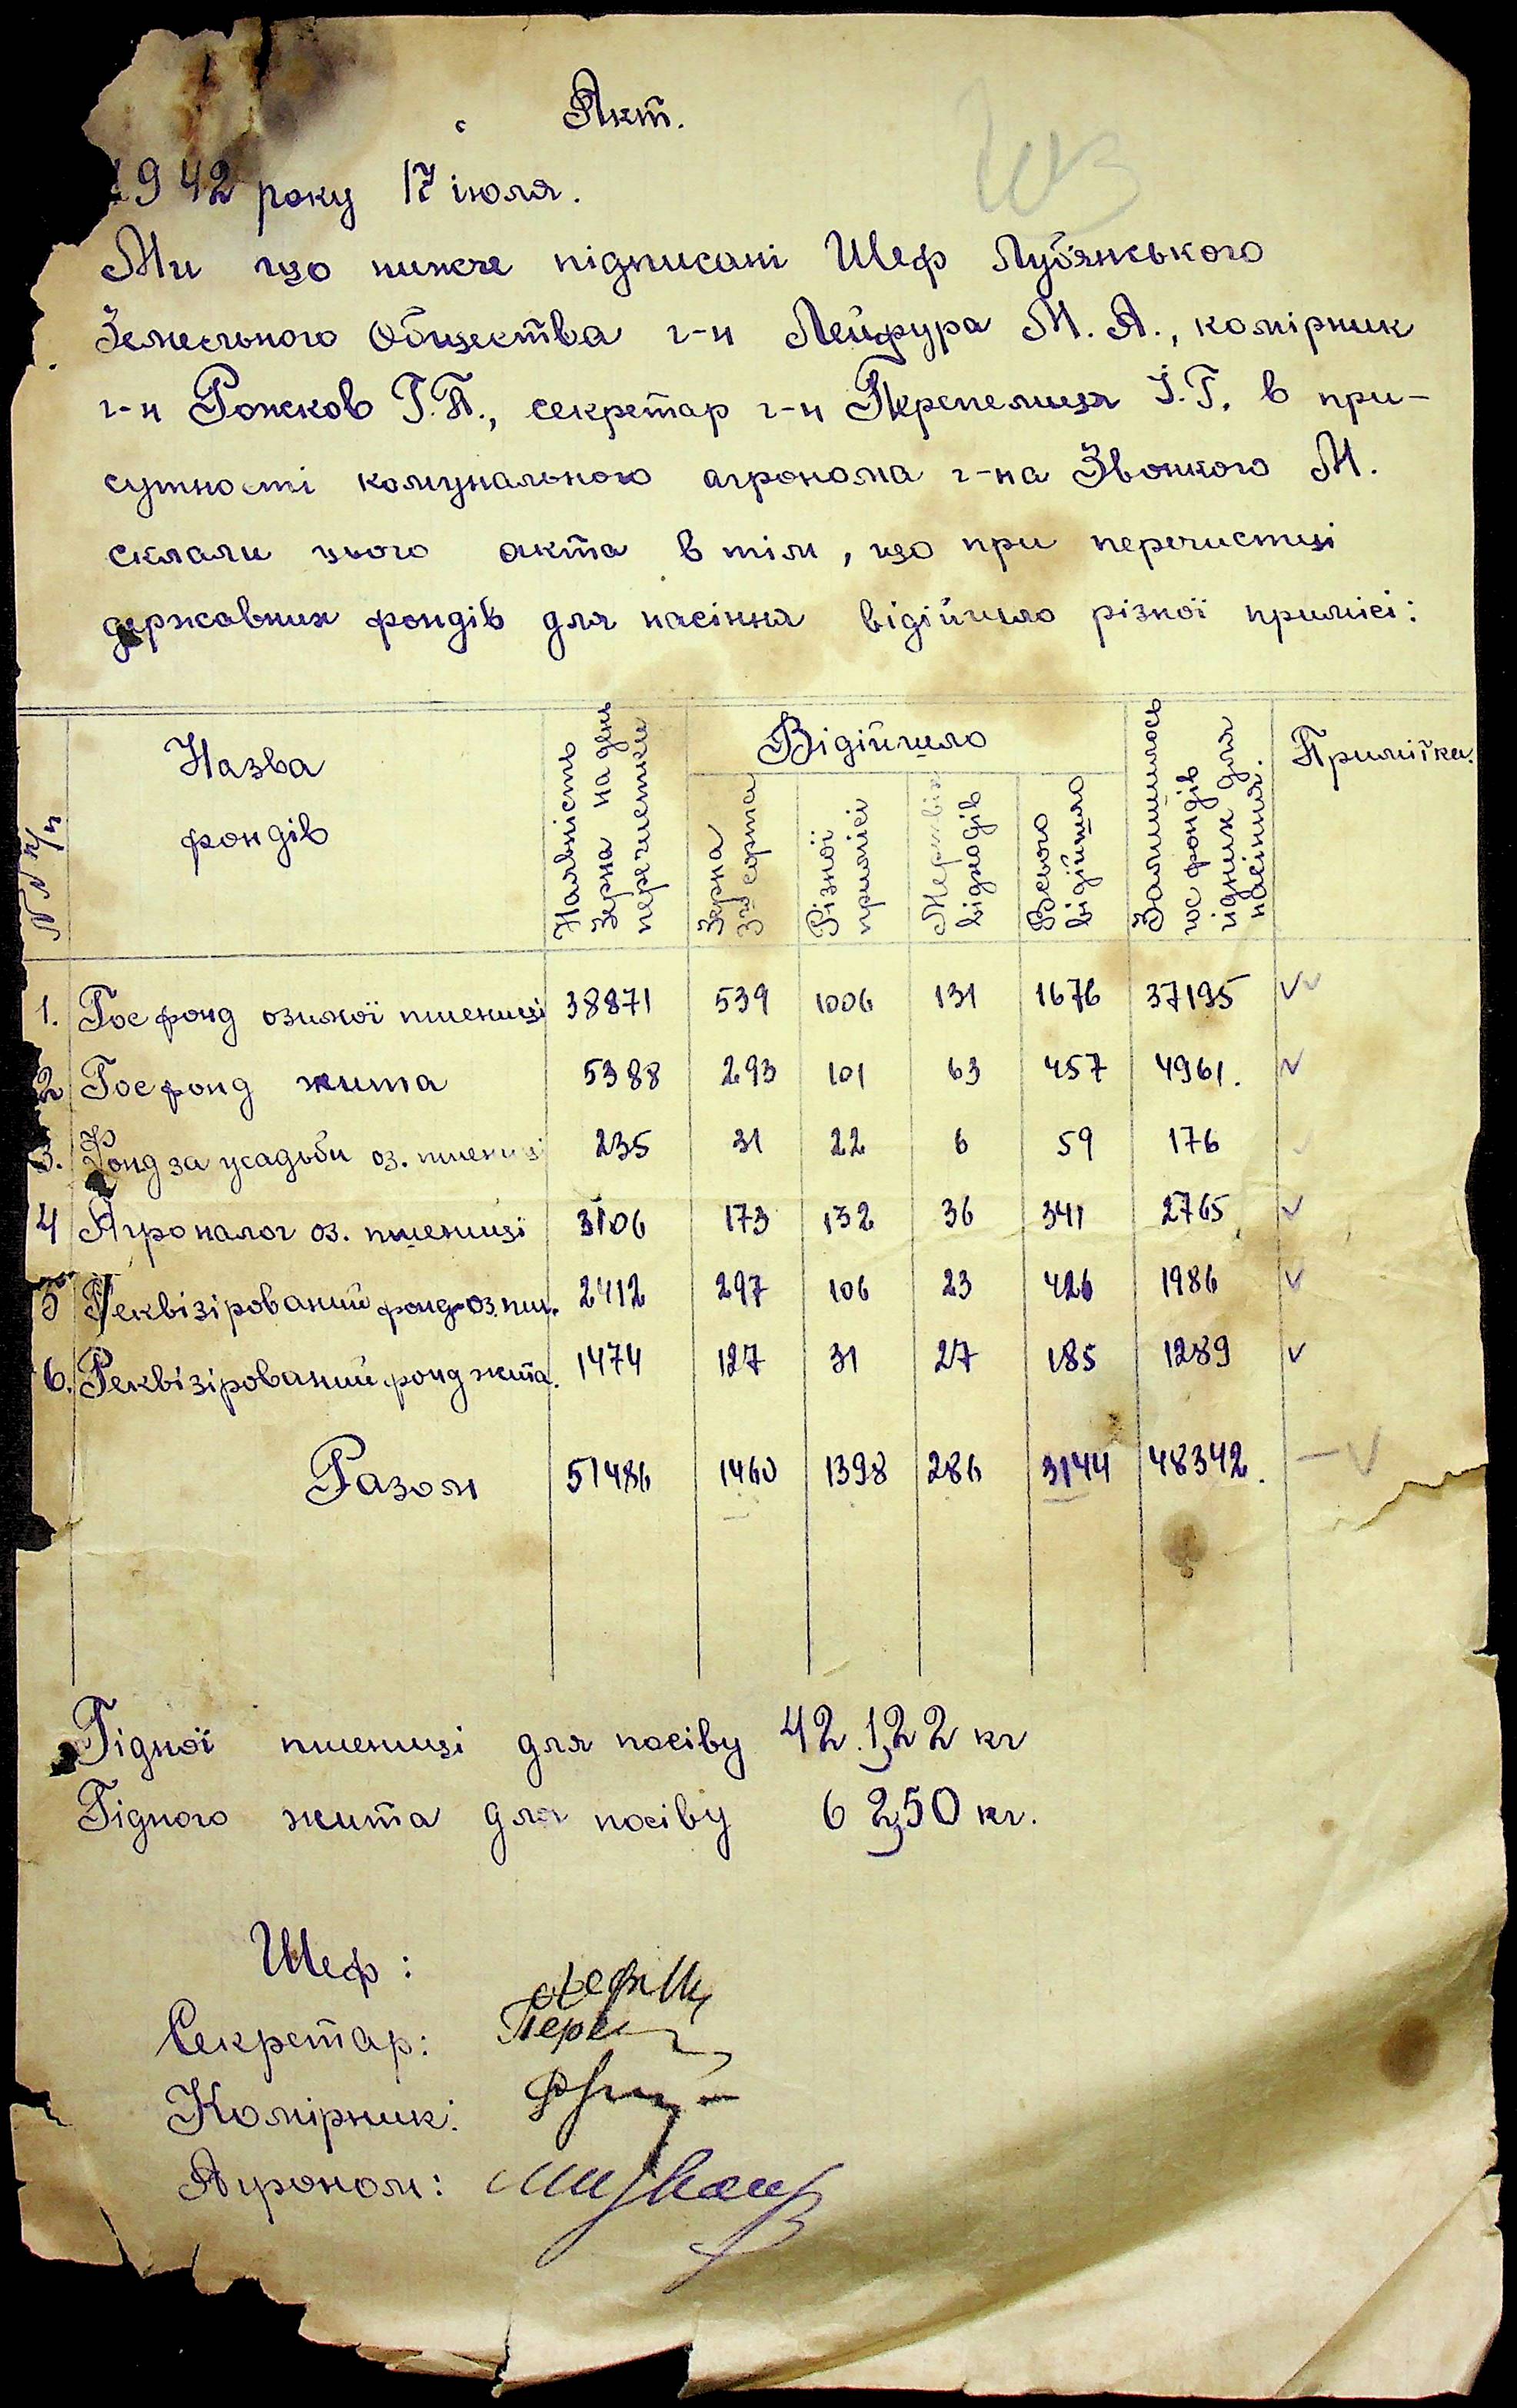 Акт.
1942 року 17 іюля.
Ми що нижче підписані Шеф Луб'янського
Земельного Общества г-н Лейфура М. А., комірник
г-н Рожков Г.П., секретар г-н Перепелиця І.Г. в при-
сутності комунального агронома г-на Звонкого М.
склали цього акта в тім, що при перечистці
державних фондів для насіння відійшло різної примісі:
№№ п/п | Назва фондів | Наявність зерна на день перечистки | Відійшло | Залишилось гос фондів гідних для насіння. | Примітка.
Зерна 3го сорта | Різної примісі | Мертвих відходів | Всього відійшло
1. Гос фонд озимої пшениці 38871 539 1006 131 1676 37195 ✓✓
2 Госфонд жита 5388 293 101 63 457 4961. ✓
3. Фонд за усадьби оз. пшениці 235 31 22 6 59 176 ✓
4 Агроналог оз. пшениці 3106 173 132 36 341 2765 ✓
5 Реквізірований фонд оз. пш. 2412 297 106 23 426 1986 ✓
6. Реквізірований фонд жита. 1474 127 31 27 185 1289 ✓
Разом 51486 1460 1398 286 3144 48342. — ✓
Гідної пшениці для посіву 42.122 кг
Гідного жита для посіву 6250 кг.
Шеф:
Секретар:
Комірник:
Агроном: